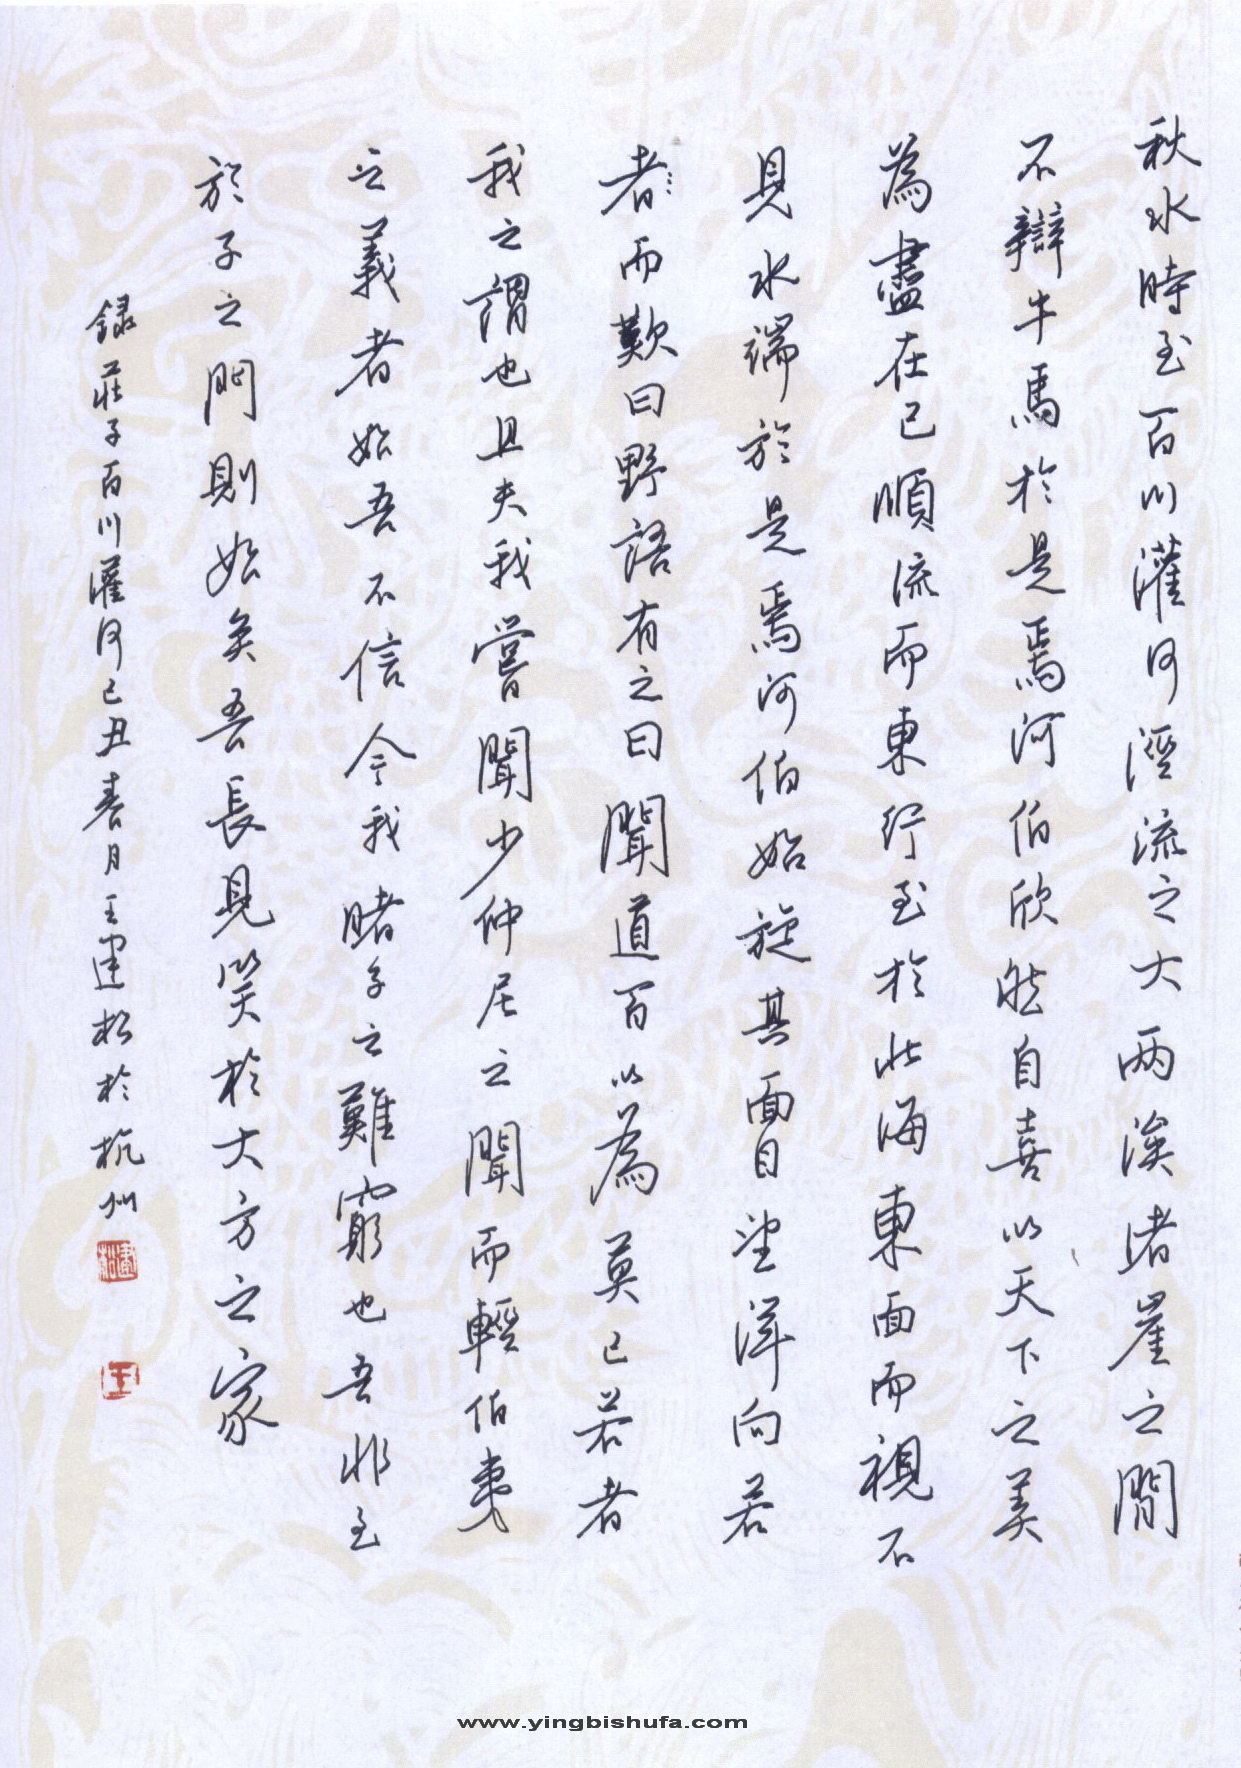 秋水時至百川灌河涇流之大两涘渚崖之間
不辯牛馬於是焉河伯欣然自喜以天下之美
為盡在己順流而東行至於北海東面而視不
見水端於是焉河伯始旋其面目望洋向若
者而歎曰野語有之曰聞道百以為莫己若者
我之謂也且夫我嘗聞少仲尼之聞而輕伯夷
之義者始吾不信今我睹子之難窮也吾非至
於子之門則始矣吾長見笑於大方之家
録莊子百川灌河己丑春月王建松於杭州
建松
王
www.yingbishufa.com